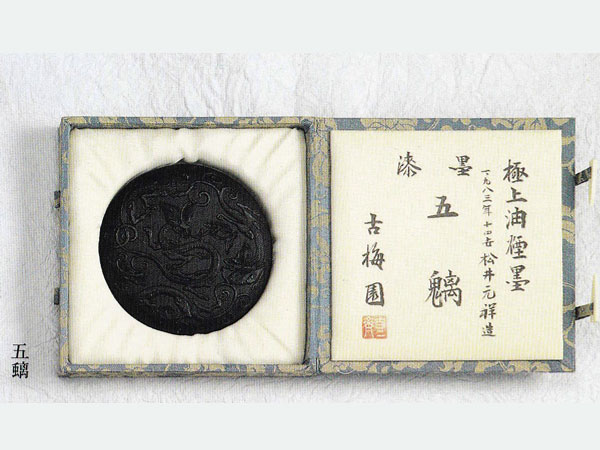 極上油煙墨
一九八三年十四 松井元祥造
漆墨
五魑
古梅園
五螭